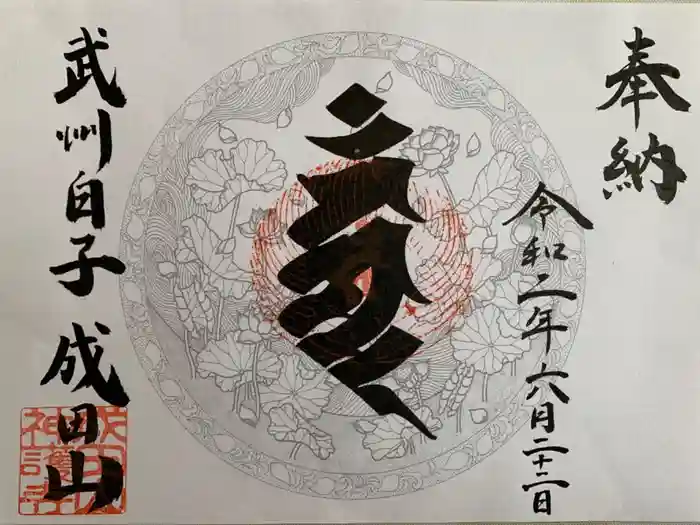 奉納
令和二年六月二十二日
武州白子 成田山